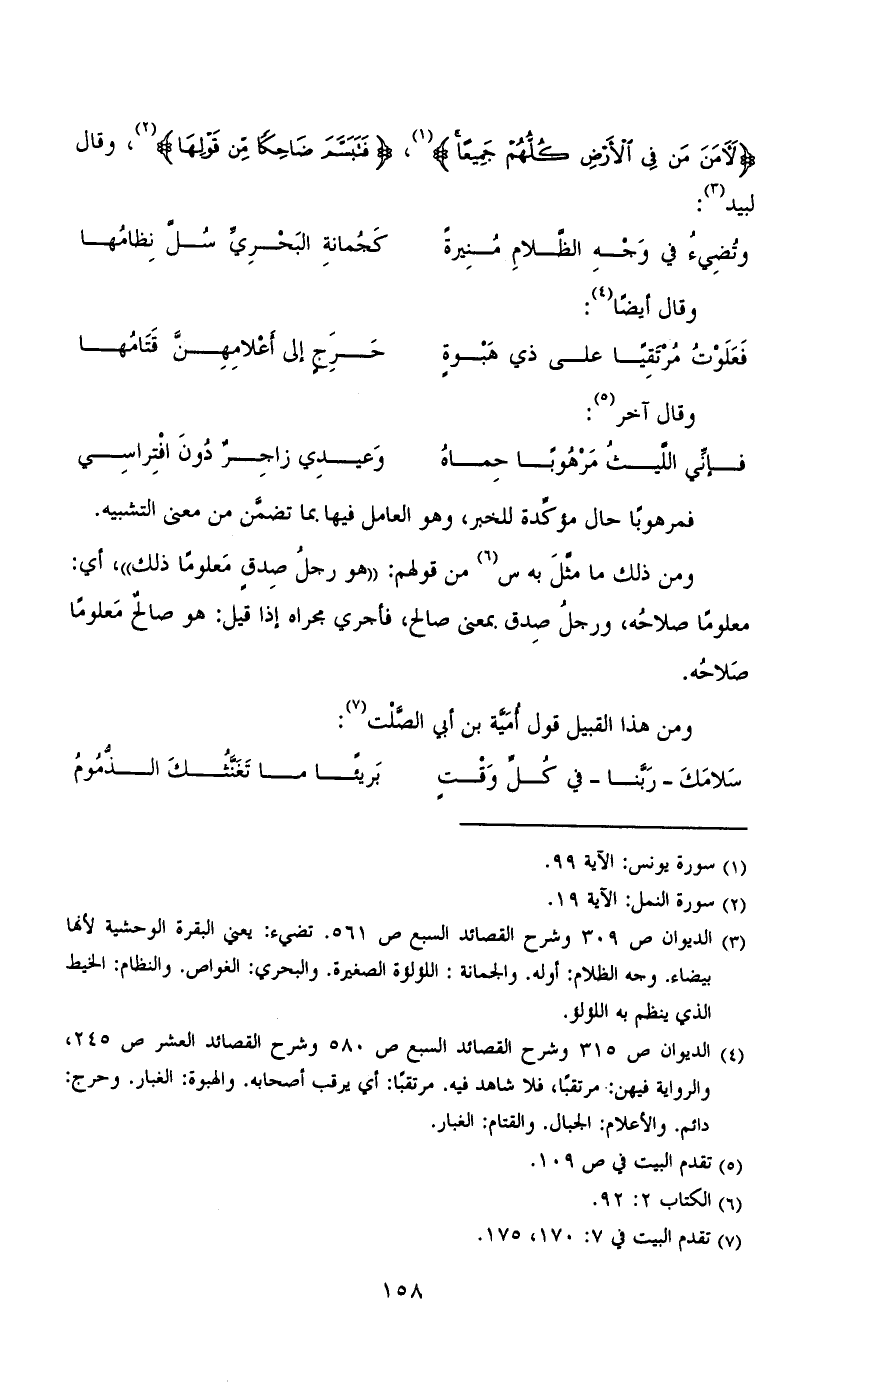 ﴿لَآمَنَ مَن فِي ٱلْأَرْضِ كُلُّهُمْ جَمِيعًا﴾(١)، ﴿فَتَبَسَّمَ ضَاحِكًا مِّن قَوْلِهَا﴾(٢)، وقال
لبيد(٣):
وتُضِيءُ في وَجْـــهِ الظَّــلامِ مُــنِيرةً كَجُمانةِ البَحْــرِيِّ سُـــلَّ نِظامُهــا
وقال أيضًا(٤):
فَعَلَوْتُ مُرْتَقِيًــا علــى ذي هَبْــوةٍ حَـــرَجٍ إلى أَعْلامِهِـــنَّ قَتَامُهـــا
وقال آخر(٥):
فــإنِّي اللَّيــثُ مَرْهُوبًــا حِمــاهُ وَعيــدِي زاجــرٌ دُونَ افْتِراسِــي
فمرهوبًا حال مؤكِّدة للخبر، وهو العامل فيها بما تضمَّن من معنى التشبيه.
ومن ذلك ما مثَّلَ به س(٦) من قولهم: ((هو رجلُ صِدقٍ مَعلومًا ذلك))، أي:
معلومًا صلاحُه، ورجلُ صِدق بمعنى صالح، فأجري مجراه إذا قيل: هو صالحٌ مَعلومًا
صَلاحُه.
ومن هذا القبيل قول أُمَيَّة بن أبي الصَّلْت(٧):
سَلامَكَ - رَبَّنــا - في كُــلِّ وَقْــتٍ بَريئًــا مــا تَغَنَّثُــكَ الــذُّمُومُ
(١) سورة يونس: الآية ٩٩.
(٢) سورة النمل: الآية ١٩.
(٣) الديوان ص ٣٠٩ وشرح القصائد السبع ص ٥٦١. تضيء: يعني البقرة الوحشية لأنها
بيضاء. وجه الظلام: أوله. والجمانة : اللؤلؤة الصغيرة. والبحري: الغواص. والنظام: الخيط
الذي ينظم به اللؤلؤ.
(٤) الديوان ص ٣١٥ وشرح القصائد السبع ص ٥٨٠ وشرح القصائد العشر ص ٢٤٥،
والرواية فيهن: مرتقبًا، فلا شاهد فيه. مرتقبًا: أي يرقب أصحابه. والهبوة: الغبار. وحرج:
دائم. والأعلام: الجبال. والقتام: الغبار.
(٥) تقدم البيت في ص ١٠٩.
(٦) الكتاب ٢: ٩٢.
(٧) تقدم البيت في ٧: ١٧٠، ١٧٥.
١٥٨